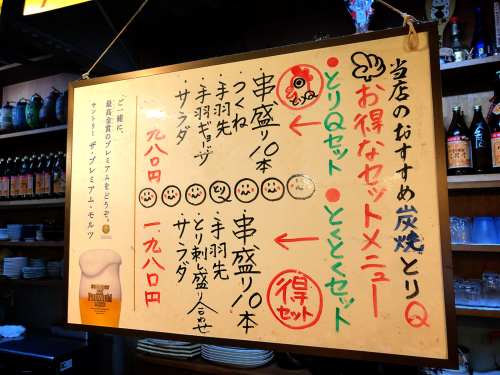 当店のおすすめ炭焼とりQ
お得なセットメニュー
・とりQセット
・とくとくセット
とりQ
串盛り10本
・つくね
・手羽先
・手羽ギョーザ
・サラダ
九八〇円
とりQ
得セット
串盛り10本
・手羽先
・とり刺し盛り合わせ
サラダ
一、九八〇円
ご一緒に、
最高金賞のプレミアムをどうぞ。
サントリー ザ・プレミアム・モルツ